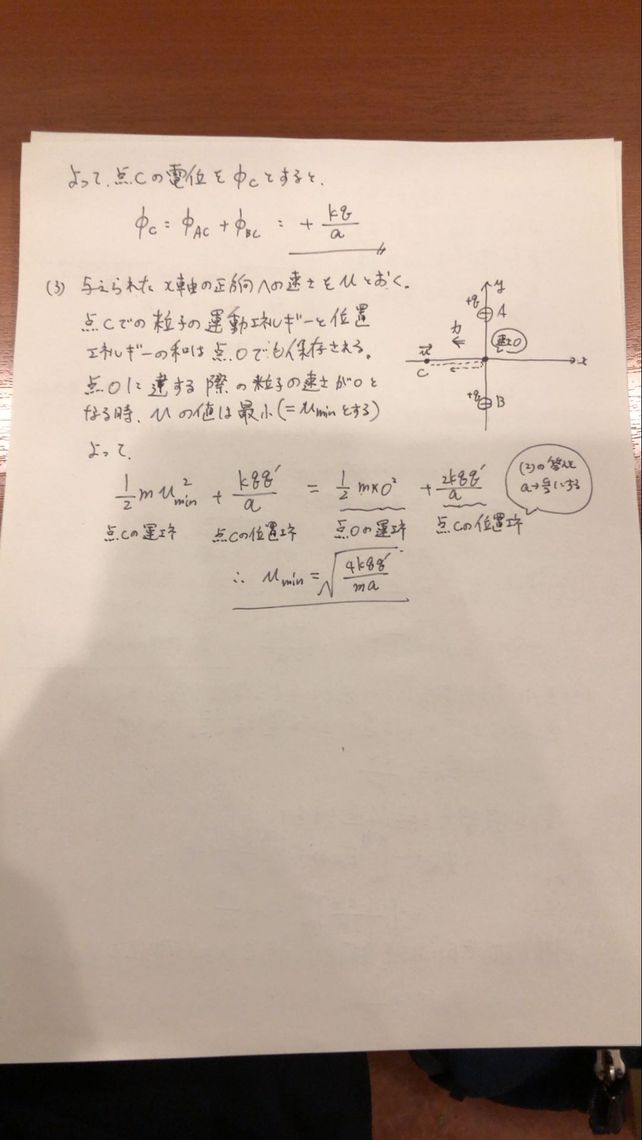 よって、点Cの電位をφcとすると、
φc = φAC + φBC = + kq/a
(3) 与えられた x軸の正方向への速さをuとおく。
点Cでの粒子の運動エネルギーと位置
エネルギーの和は点Oでも保存される。
点Oに達する際の粒子の速さが0と
なる時、uの値は最小(=uminとする)
よって、
1/2 m umin² + kqq'/a = 1/2 m×0² + 2kqq'/a
点Cの運エネ 点Cの位置エネ 点Oの運エネ 点Cの位置エネ
∴ umin = √(4kqq'/ma)
y
+q A
力
速さ0
C x
+q B
(2)の答えと